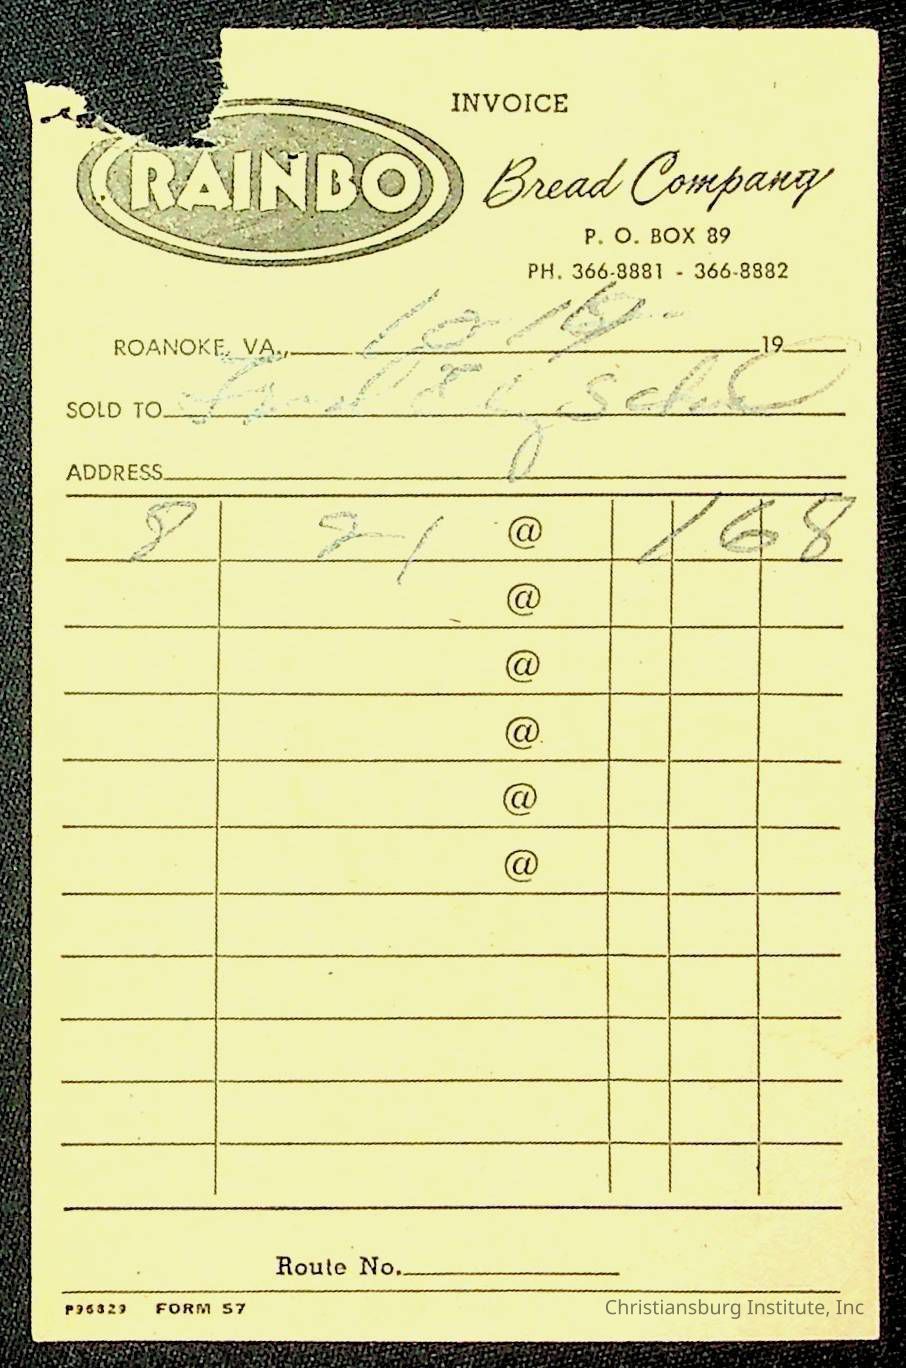 INVOICE
RAINBO
Bread Company
P. O. BOX 89
PH. 366-8881 - 366-8882
ROANOKE, VA., 10 19
SOLD TO
ADDRESS
8 21 @ 168
@
@
@
@
@
Route No.
P96829 FORM S7
Christiansburg Institute, Inc